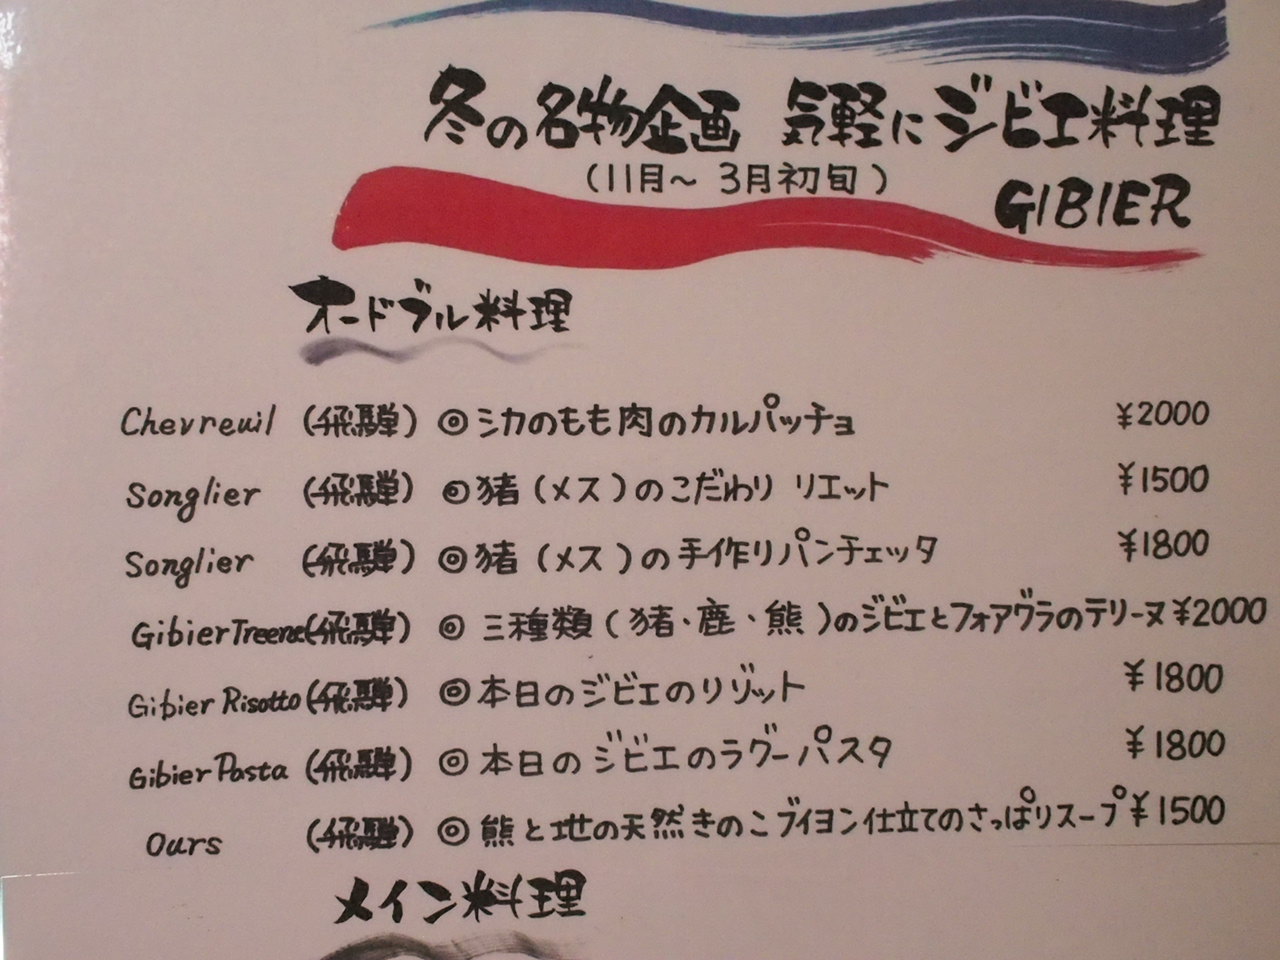 冬の名物企画 気軽にジビエ料理
(11月〜 3月初旬) GIBIER
オードブル料理
Chevreuil (飛騨) ◎シカのもも肉のカルパッチョ ¥2000
Songlier (飛騨) ◎猪(メス)のこだわり リエット ¥1500
Songlier (飛騨) ◎猪(メス)の手作りパンチェッタ ¥1800
Gibier Treene(飛騨) ◎ 三種類(猪・鹿・熊)のジビエとフォアグラのテリーヌ ¥2000
Gibier Risotto(飛騨) ◎本日のジビエのリゾット ¥1800
Gibier Pasta (飛騨) ◎本日のジビエのラグーパスタ ¥1800
Ours (飛騨) ◎熊と地の天然きのこブイヨン仕立てのさっぱりスープ ¥1500
メイン料理